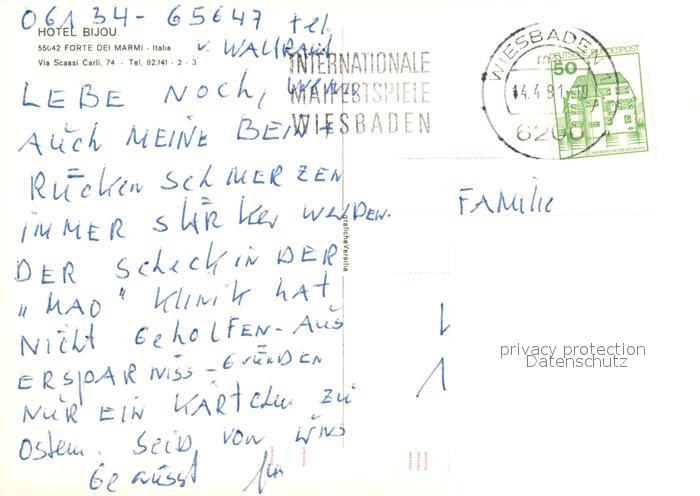 06134-65647 tel.
HOTEL BIJOU
55042 FORTE DEI MARMI - Italia
Via Scassi Carli, 74 - Tel. 82.141 - 2 - 3
v. WALLRAUH
LEBE NOCH, WENN
AUCH MEINE BEIN+
RÜCKEN SCHMERZEN
IMMER STÄRKER WERDEN.
DER SCHECK IN DER
"MAO" KLINIK HAT
NICHT GEHOLFEN - AUS
ERSPARNISS-GRÜNDEN
NUR EIN KÄRTCHEN ZU
OSTERN. SEID VON UNS
GEGRÜSST
INTERNATIONALE
MAIFESTSPIELE
WIESBADEN
WIESBADEN
14.4.81-19
6200
DEUTSCHE BUNDESPOST
50
FAMILIE
graficheVersilia
privacy protection
Datenschutz